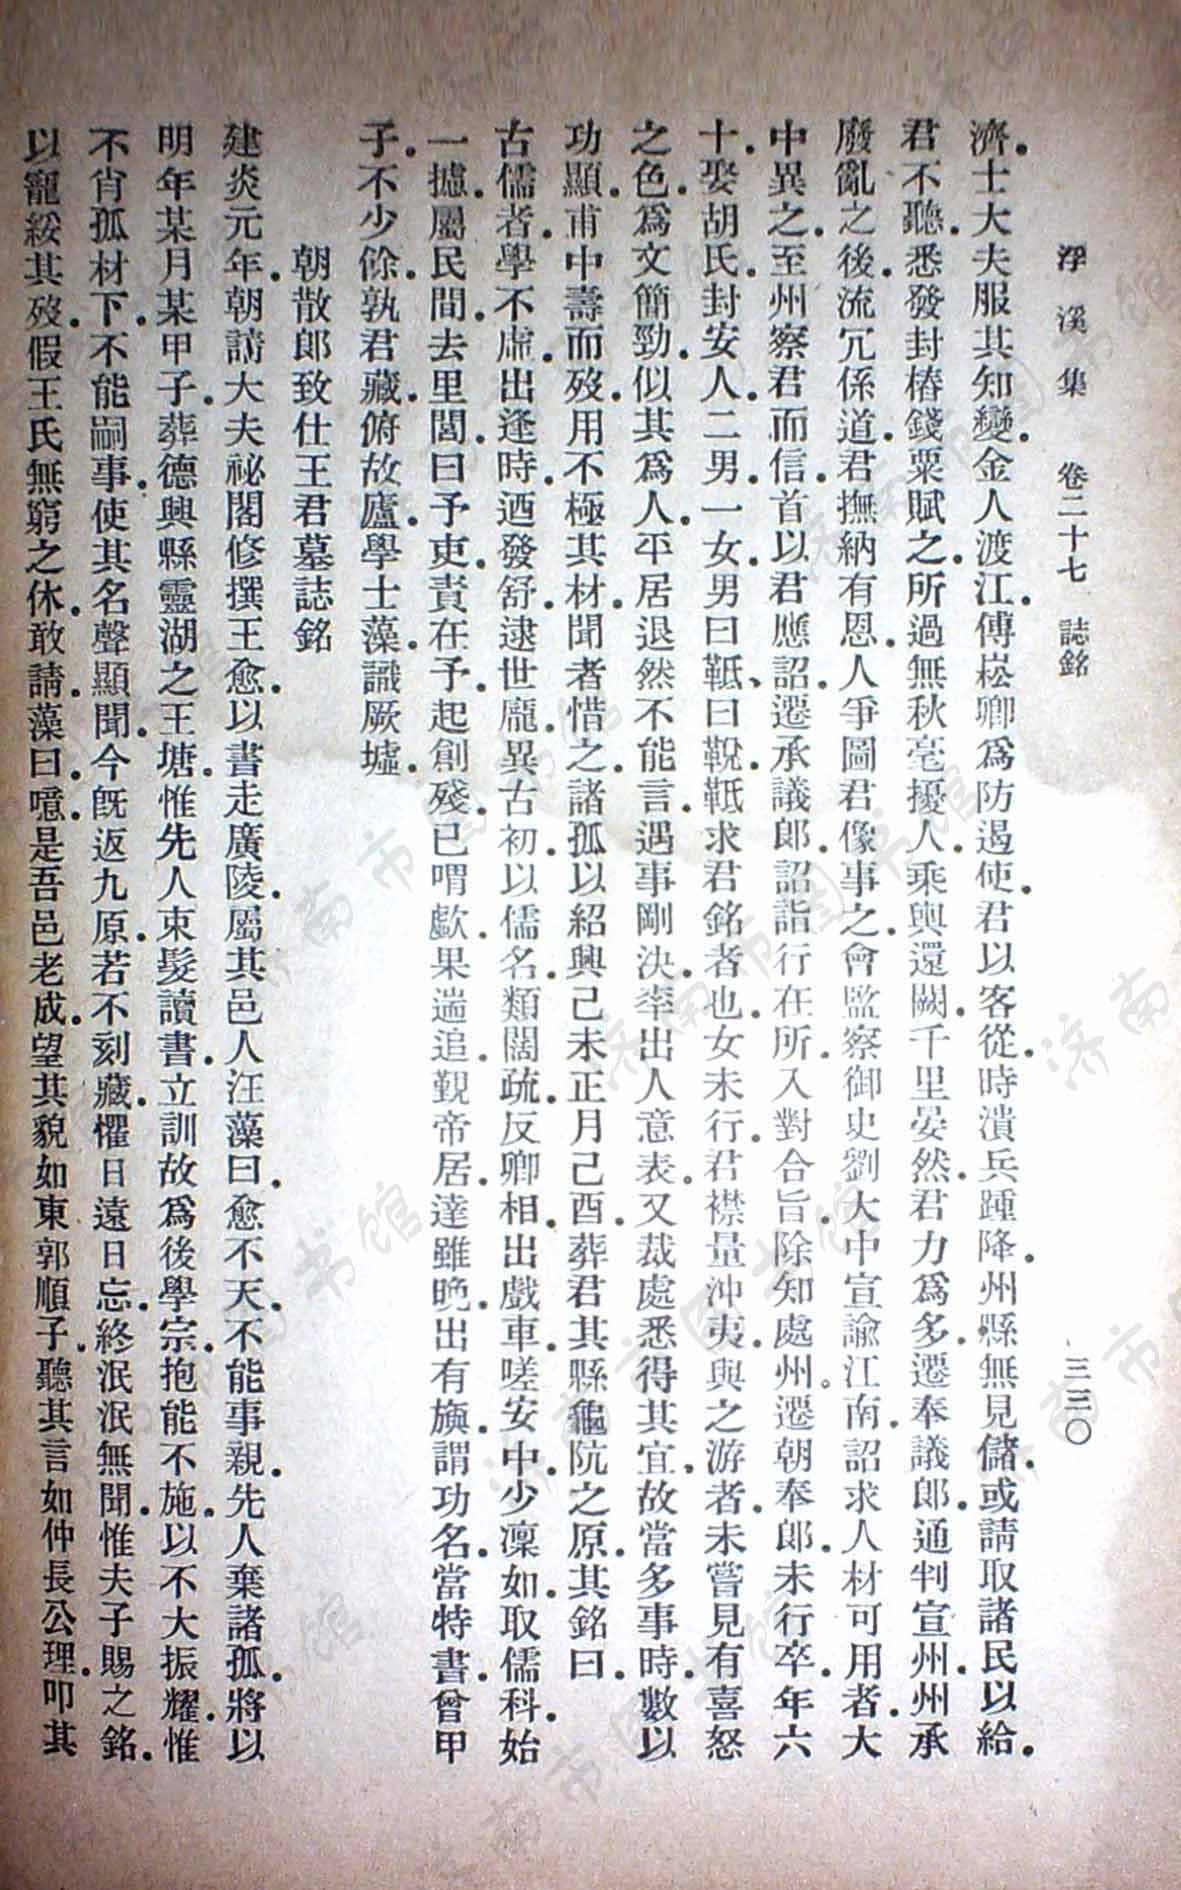 浮溪集　卷二十七　誌銘　三三〇
濟.士大夫服其知變.金人渡江.傅崧卿爲防遏使.君以客從.時潰兵踵降.州縣無見儲.或請取諸民以給.
君不聽.悉發封樁錢粟賦之.所過無秋毫擾人.乘輿還闕.千里晏然.君力爲多.遷奉議郎.通判宣州.州承
廢亂之後.流冗係道.君撫納有恩.人爭圖君像事之.會監察御史劉大中宣諭江南.詔求人材可用者.大
中異之.至州察君而信.首以君應詔.遷承議郎.詔詣行在所.入對合旨.除知處州。遷朝奉郎.未行卒.年六
十.娶胡氏.封安人.二男.一女.男曰䩞、曰䩤.䩞求君銘者也.女未行.君襟量沖夷.與之游者.未嘗見有喜怒
之色.爲文簡勁.似其爲人.平居退然不能言.遇事剛決.率出人意表。又裁處悉得其宜.故當多事時.數以
功顯.甫中壽而歿.用不極其材.聞者惜之.諸孤以紹興己未正月己酉.葬君其縣龜阬之原.其銘曰.
古儒者.學不虛.出逢時.迺發舒.逮世龐.異古初.以儒名.類闊疏.反卿相.出戲車.嗟安中.少凜如.取儒科.始
一摅.屬民間.去里閭.曰予吏.責在予.起創殘.已喟歔.果遄追.覲帝居.達雖晚.出有旟.謂功名.當特書.曾甲
子.不少餘.孰君藏.俯故廬.學士藻.識厥墟.
朝散郎致仕王君墓誌銘
建炎元年.朝請大夫祕閣修撰王愈.以書走廣陵.屬其邑人汪藻曰.愈不天.不能事親.先人棄諸孤.將以
明年某月某甲子.葬德興縣靈湖之王塘.惟先人束髮讀書.立訓故爲後學宗.抱能不施.以不大振耀.惟
不肖孤材下.不能嗣事.使其名聲顯聞.今既返九原.若不刻藏.懼日遠日忘.終泯泯無聞.惟夫子賜之銘.
以寵綏其歿.假王氏無窮之休.敢請.藻曰.噫.是吾邑老成.望其貌如東郭順子.聽其言如仲長公理.叩其